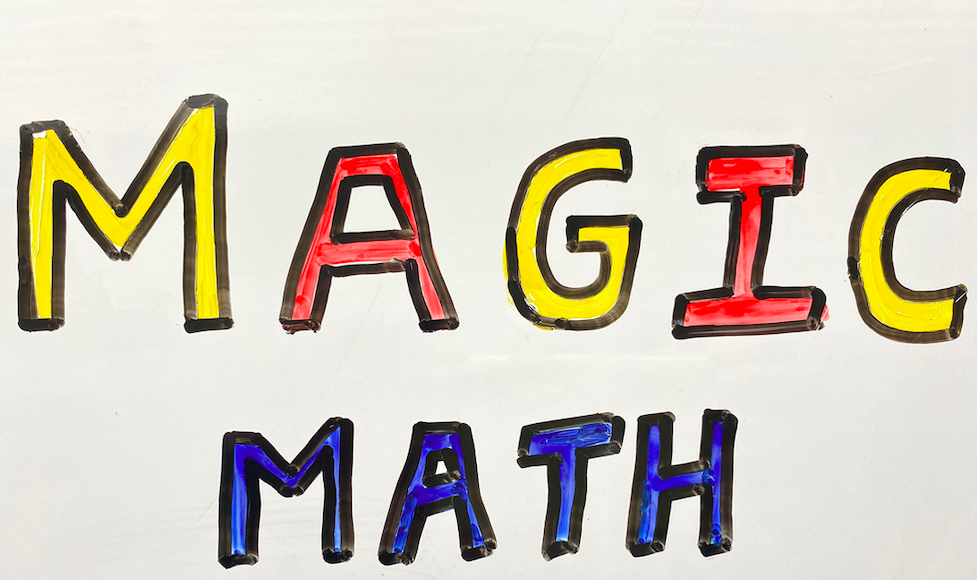 MAGIC
MATH